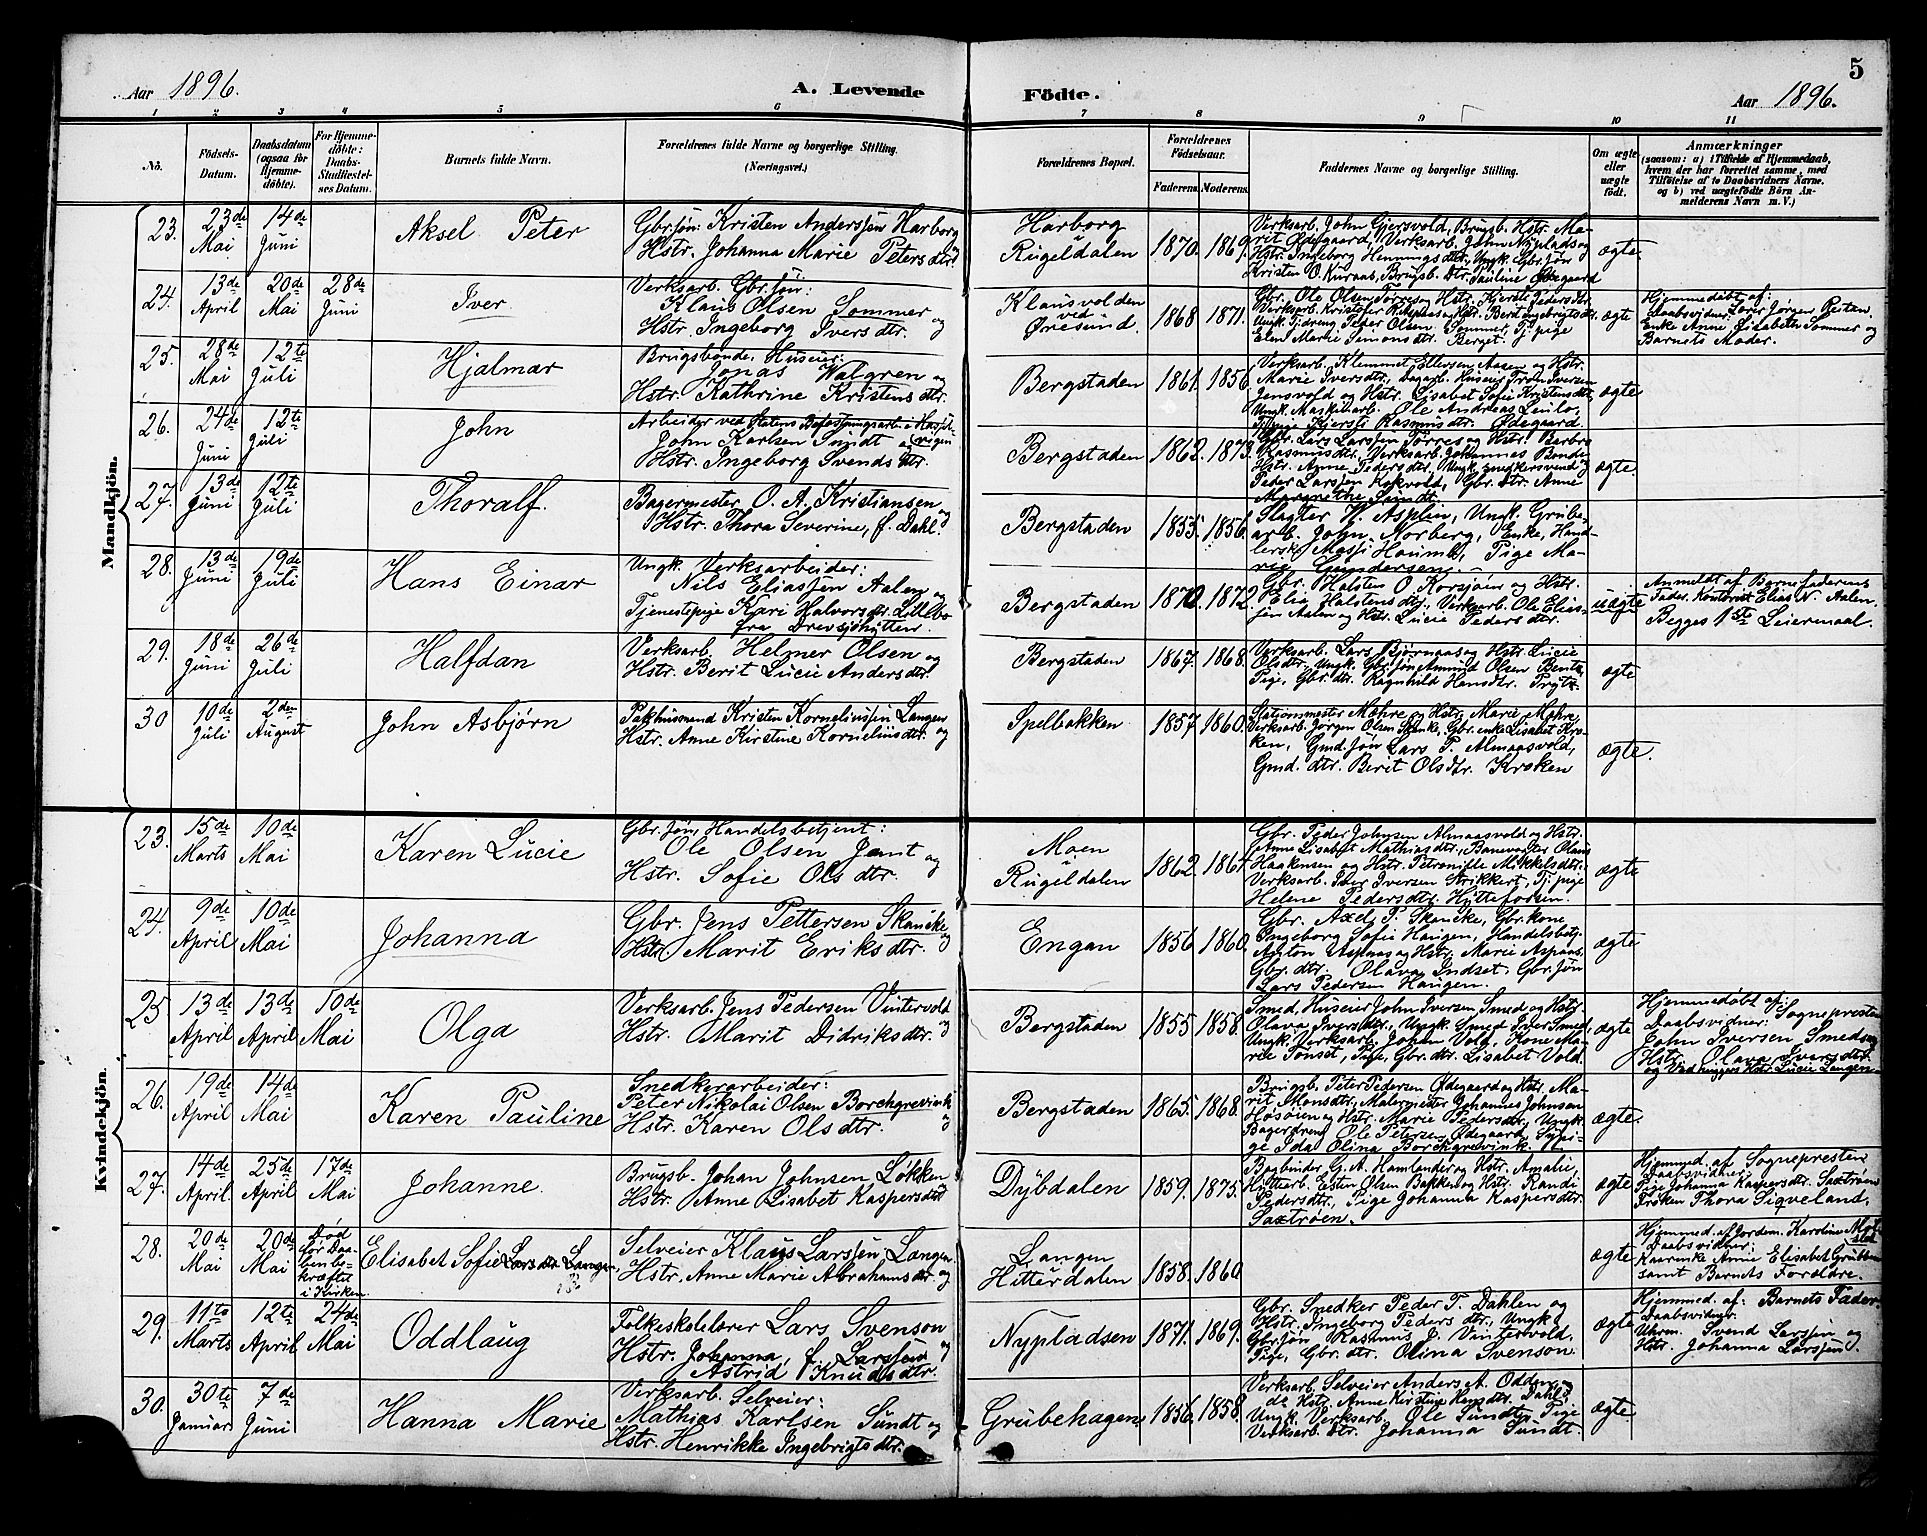 5
Aar 1896. A. Levende Födte. Aar 1896.
1 2 3 4 5 6 7 8 9 10 11
No. Födsels-Datum. Daabsdatum (ogsaa for Hjemme-döbte). For Hjemme-döbte: Daabs-Stadfæstel-ses Datum. Barnets fulde Navn. Forældrenes fulde Navne og borgerlige Stilling. (Næringsvei.) Forældrenes Bopæl. Forældrenes Födselsaar. Faderens. Moderens. Faddernes Navne og borgerlige Stilling. Om ægte eller uægte födt. Anmærkninger (saasom: a) i Tilfælde af Hjemmedaab, hvem der har forrettet samme, med Tilföielse af to Daabsvidners Navne, og b) ved uægtefödte Börn An-melderens Navn m. V.)
Mandkjön.
23. 23de Mai 14de Juni Aksel Peter Gbr.Jøn: Kristen Andersjøn Harborg og
Hstr. Johanna Marie Petersdtr. Harborg Rugeldalen 1870. 1869.
Verksarb. John Gjersvold, Brugsb. Hstr. Ma-
rit Ødegaard, Verksarb. John Nyplads og
Hstr. Ingeborg Henningsdtr., Ungk. Gbr. Jøn
Kristen O. Kuraas, Brugsb. Dtr. Pauline Ødegaard ægte.
24. 13de April 20de Mai 28de Juni Iver Verksarb. Gbr. Jøn:
Klaus Olsen Sommer og
Hstr. Ingeborg Iversdtr. Klausvolden ved Øresund. 1868 1871.
Gbr. Ole Olsen Torres og Hstr. Kjersti Pedersdtr.
Elen Marie Simonsdtr. Berget. ægte
Hjemmedøbt af:
Daabsvidner: Lærer Jørgen Reitan,
Enke Anne Lisabeth Sommer og
Barnets Moder.
25. 28de Mai 12te Juli Hjalmar Brugsbonde, Huseier:
Jonas Walgren og
Hstr. Kathrine Kristensdtr. Bergstaden 1861. 1856.
Verksarb. Klemmet Ellevsen Aasen og Hstr.
Marie Iversdtr., Dagarb. Huseier Tron Iversen
Jensvold og Hstr. Lisabet Sofie Kristensdtr,
Ungk. Maskinarb. Ole Andreas Leinlo,
Tj.pige Kjersti Rasmusdtr. Ødegaard. ægte
26. 24de Juni 12te Juli John Arbeider ved Statens
John Karlsen Sundt og
Hstr. Ingeborg Svendsdtr. Bergstaden 1862. 1873.
Gbr. Lars Larsjen Torres og Hstr. Barbro
Rasmusdtr., Verksarb. Johannes Bonde
Hstr. Anne Pedersdtr., Ungk. Snedkersvend
Peder Larsjen Kokvold, Gbr. Dtr. Anne
Margrethe Sundt. ægte.
27. 13de Juni 12te Juli Thoralf. Bagermester O. A. Kristiansen og
Hstr. Thora Severine, f. Dahl. Bergstaden 1855. 1856.
Slagter W. Asplin, Ungk. Grube-
arb. John Norberg, Enke, Hand-
lersk. Massi Houmb, Pige Ma-
rie Gundersen.
28. 13de Juni 19de Juli Hans Einar Ungk. Verksarbeider:
Nils Eliasjen Aalen og
Tjenestepige Kari Halvorsdtr. Lillebo
fra Drevsjøhytten. Bergstaden 1870. 1872.
Gbr. Halsten O. Korsjøen og Hstr.
Elie Halstensdtr., Verksarb. Ole Elias-
jen Aalen og Hstr. Lucie Pedersdtr. uægte
Anmeldt af Barnefaderens
Fader, Kontorist Elias N. Aalen.
Begges 1ste Leiermaal.
29. 18de Juni 26de Juli Halfdan Verksarb. Helmer Olsen og
Hstr. Berit Lucie Andersdtr. Bergstaden 1867. 1868.
Verksarb. Lars Bjørnaas og Hstr. Lucie
Olsdtr., Ungk. Gbr. Jøn Amund Olsen
Pige, Gbr. dtr. Ragnhild Hansdtr. Prytz. ægte
30 10de Juli 2den August John Asbjørn Pakhusmand Kristen Korneliussen Langen og
Hstr. Anne Kirstine Korneliusdtr. Spelbakken 1857. 1860.
Stationsmester Møhre og Hstr. Marie Møhre,
Verksarb. Jørgen Olsen Skanke, Gbr. enke Lisabet Kro-
ken, Gmd. Jøn Lars P. Almaasvold,
Gmd. dtr. Berit Olsdtr. Kroken ægte.
Kvindekjön.
23. 15de Marts 10de Mai Karen Lucie Gbr. Jøn, Handelsbetjent:
Ole Olsen Jamt og
Hstr. Sofie Olsdtr. Moen Rugeldalen 1862. 1864.
Gbr. Peder Johnsen Almaasvold og Hstr.
Anne Lisabet Mathiasdtr., Banevogter Olaus
Haakensen og Hstr. Petronille Mikkelsdtr.
Verksarb. Peder Iversen Strikkert, Tj.pige
Helene Pedersdtr. Hyttefossen. ægte
24. 9de April 10de Mai Johanna Gbr. Jens Pettersen Skancke og
Hstr. Marit Eriksdtr. Engan 1856 1860.
Gbr. Axel P. Skancke, Gbr. kone
Ingeborg Sofie Haugen, Handelsbetj.
Anton Aspaas og Hstr. Marie Aspaas.
Gbr. dtr. Olava Indset. Gbr. Jøn
Lars Pedersen Haugen. ægte
25 13de April 13de April 10de Mai Olga Verksarb. Jens Pedersen Vintervold og
Hstr. Marit Didriksdtr. Bergstaden 1855. 1858.
Smed, Huseier John Iversen Smed og Hstr.
Olava Iversdtr., Ungk. Smed Iver Smed,
Ungk. Verksarb. Johan Vold, Kone Ma-
rie Tønset, Pige, Gbr. dtr. Lisabet Vold. ægte
Hjemmedøbt af: Sognepresten
Daabsvidner:
John Iversen Smed og
Hstr. Olava Iversdtr.
og Vedhugger Hstr. Lucie Langen
26. 19de April 14de Mai Karen Pauline Snedkerarbeider:
Peter Nikolai Olsen Borchgrevink og
Hstr. Karen Olsdtr. Bergstaden 1865. 1868.
Brugsb. Peter Pedersen Ødegaard og Hstr. Ma-
rit Monsdtr., Malermester Johannes Johnsen
Høsøien og Hstr. Marie Pedersdtr., Ungk.
Bagerdreng Ole Petersen Ødegaard,
Ida Olina Borchgrevink. ægte.
27. 14de April 25de April 17de Mai Johanne. Brugsb. Johan Johnsen Løkken og
Hstr. Anne Lisabet Kaspersdtr. Dybdalen 1859. 1875.
Bogbinder G. A. Hamlander og Hstr. Amalie,
Hyttearb. Esten Olsen Bakken og Hstr. Randi
Pedersdtr., Pige Johanna Kaspersdtr.
Saxtrøen. ægte
Hjemmed. af Sognepresten
Daabsvidner:
Pige Johanna Kaspersdtr. Saxtrøen
Frøken Thora Sigveland.
28. 20de Mai 20de Mai Død før Daa-ben be-kræftet i Kirken. Elisabet Sofie Larsdtr. Langen. Selveier Klaus Larsjen Langen og
Hstr. Anne Marie Abrahamsdtr. Langen Hitterdalen 1858. 1860 ægte
Hjemmed. af Jordem. Karoline
Daabsvidner:
Kaarenke Anne Elisabet Grubben
samt Barnets Forældre.
29. 11te Marts 12te April 24de Mai Oddlaug Folkeskolelærer Lars Svenson og
Hstr. Johanna, f. Larsjen
Astrid Knudsdtr. Nypladsen 1871. 1869.
Gbr. Snedker Peder T. Dahlen og
Hstr. Ingeborg Pedersdtr., Ungk.
Gbr. Jøn Rasmus J. Vintervold.
Pige, Gbr. dtr. Olina Svenson. ægte
Hjemmed. af: Barnets Fader.
Daabsvidner:
Uhrm. Svend Larsjen og
Hstr. Johanna Larsjen.
30. 30te Januar 7de Juni Hanna Marie Verksarb. Selveier:
Mathias Karlsen Sundt og
Hstr. Henrikke Ingebrigtsdtr. Grubehagen 1856. 1858.
Verksarb. Selveier Anders A. Odden og
Hstr. Anne Kirstine Hansdtr. Dahl,
Ungk. Verksarb. Ole Sundt, Pige
Verksarb. dtr. Johanna Sundt. ægte